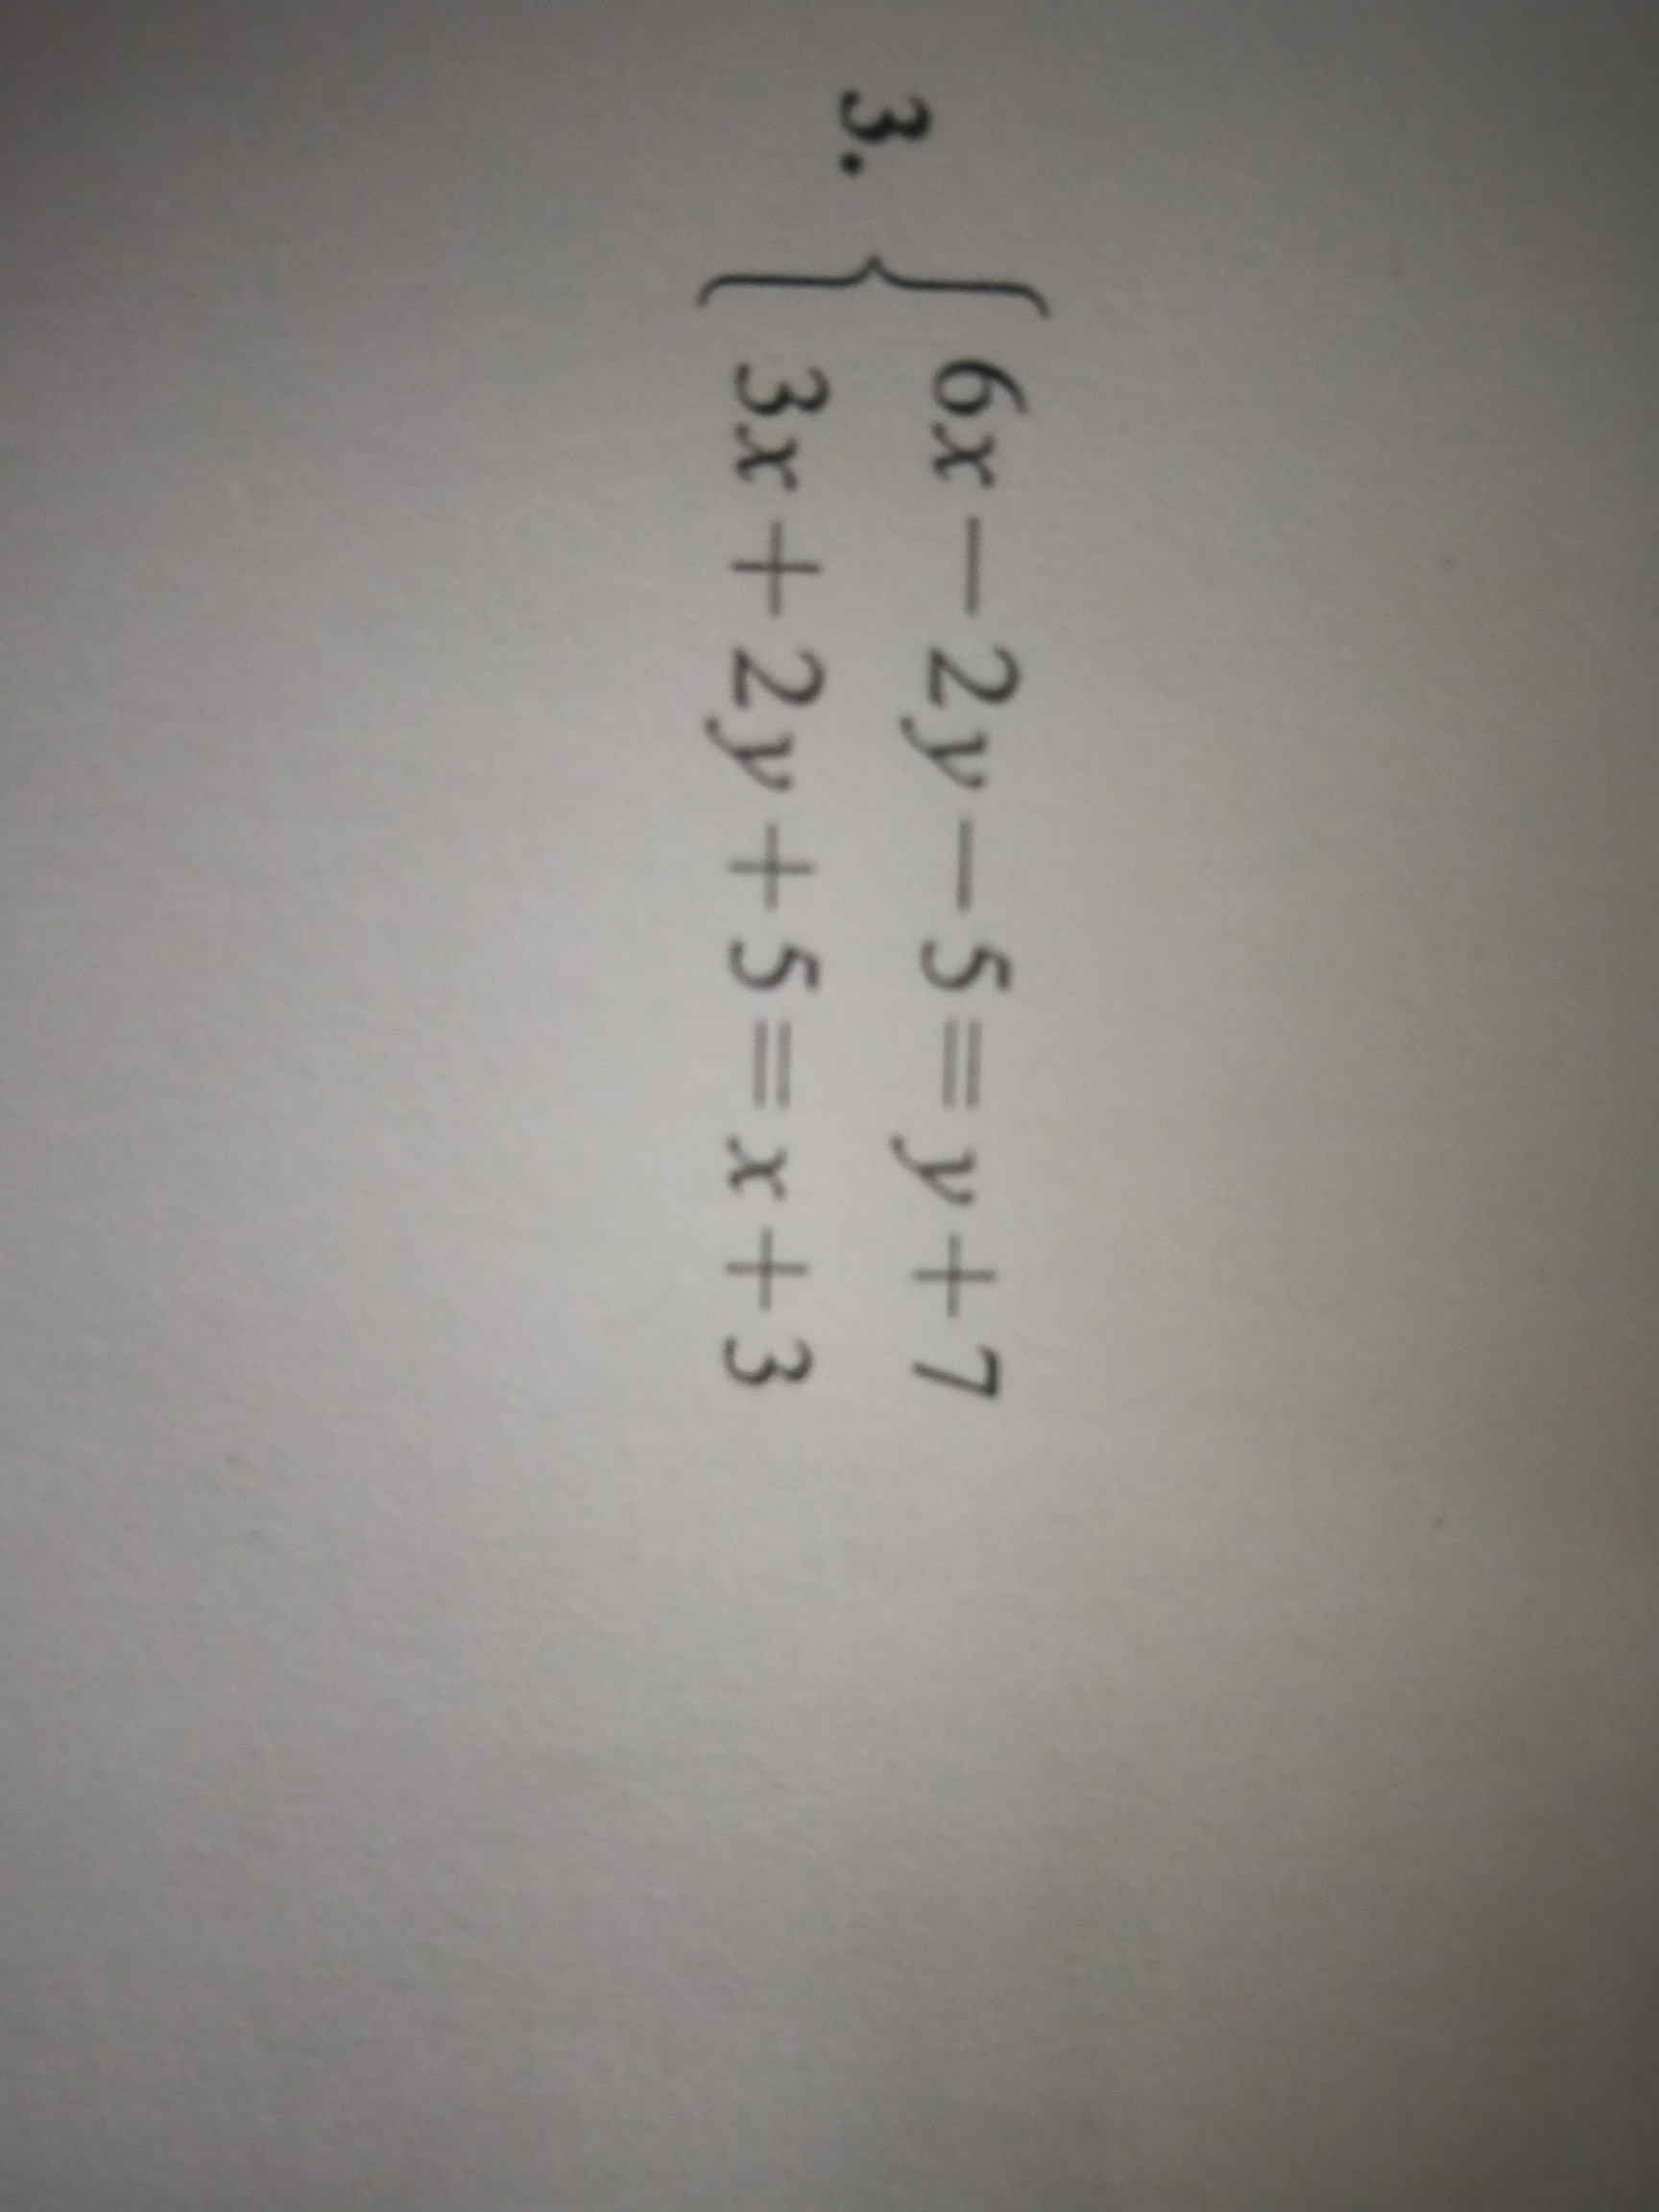 3. { 6x − 2y − 5 = y + 7
3x + 2y + 5 = x + 3